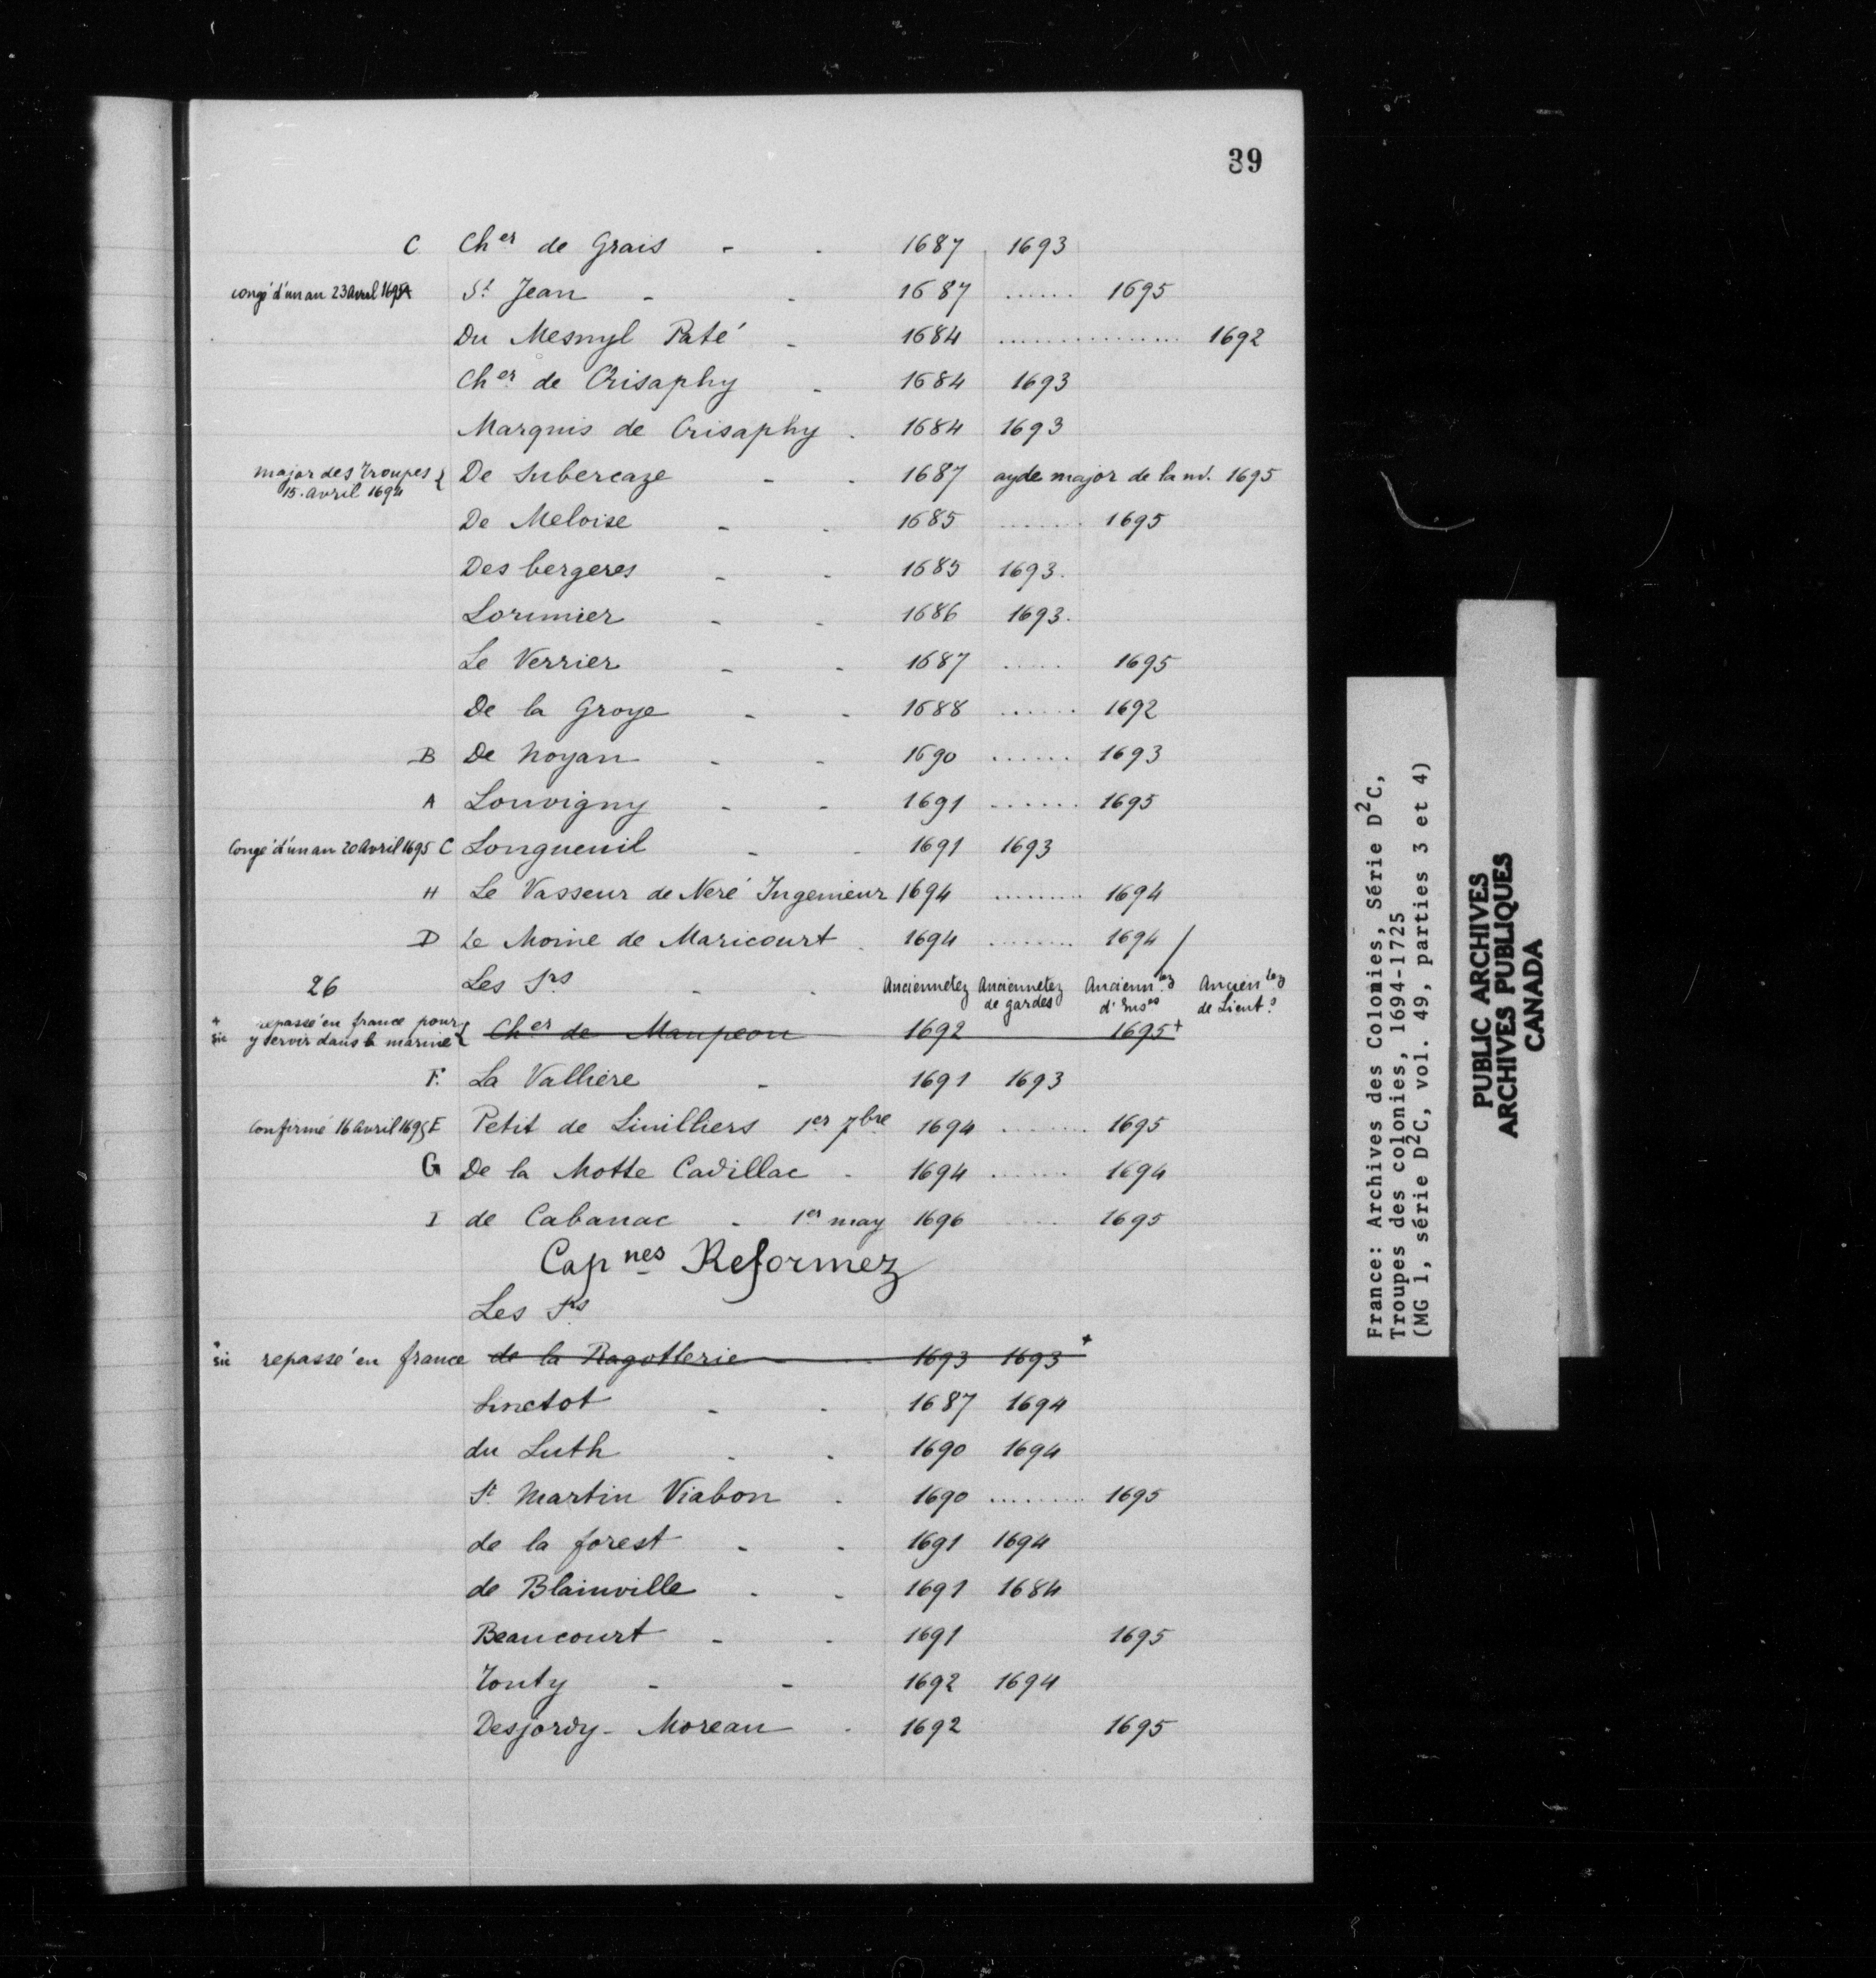 39
C Cher de Grais - . 1687 1693
congé d'un an 23 avril 1695 A St Jean - . 1687 ...... 1695
Du Mesnyl Paté - 1684 .................. 1692
Cher de Crisaphy - 1684 1693
Marquis de Crisaphy . 1684 1693
major des troupes 15. avril 1694 { De Subercaze - . 1687 ayde major de la m. 1695
De Meloise - . 1685 ........ 1695
Des bergeres - - 1685 1693.
Lorimier - - 1686 1693.
Le Verrier - . 1687 ..... 1695
De la Groye - - 1688 ...... 1692
B De Noyan - - 1690 ...... 1693
A Louvigny - - 1691 ....... 1695
Congé d'un an 20 avril 1695 C Longueuil - - 1691 1693
H Le Vasseur de Neré Ingenieur 1694 ......... 1694
D Le Moine de Maricourt . 1694 ........ 1694 /
26 Les Srs - . Anciennetez Anciennetez de gardes Ancienntez d'Enses Ancientez de Lieuts
+ sic repassé en france pour y servir dans la marine { Cher de Maupeou 1692 1695+
F. La Valliere - 1691 1693
Confirmé 16 avril 1695 E Petit de Livilliers 1er 7bre 1694 ......... 1695
G De la Motte Cadillac - 1694 ....... 1694
I de Cabanac - 1er may 1696 ..... 1695
Capnes Reformez
Les Srs
+ sic repassé en france de la Ragotterie 1693 1693 +
Linctot - . 1687 1694
du Luth . . 1690 1694
St Martin Viabon . 1690 ......... 1695
de la forest - - 1691 1694
de Blainville . - 1691 1684
Beaucourt - - 1691 1695
Tonty - - 1692 1694
Desjordy - Moreau . 1692 1695
France: Archives des Colonies, Série D2C,
Troupes des colonies, 1694-1725
(MG 1, série D2C, vol. 49, parties 3 et 4)
PUBLIC ARCHIVES
ARCHIVES PUBLIQUES
CANADA